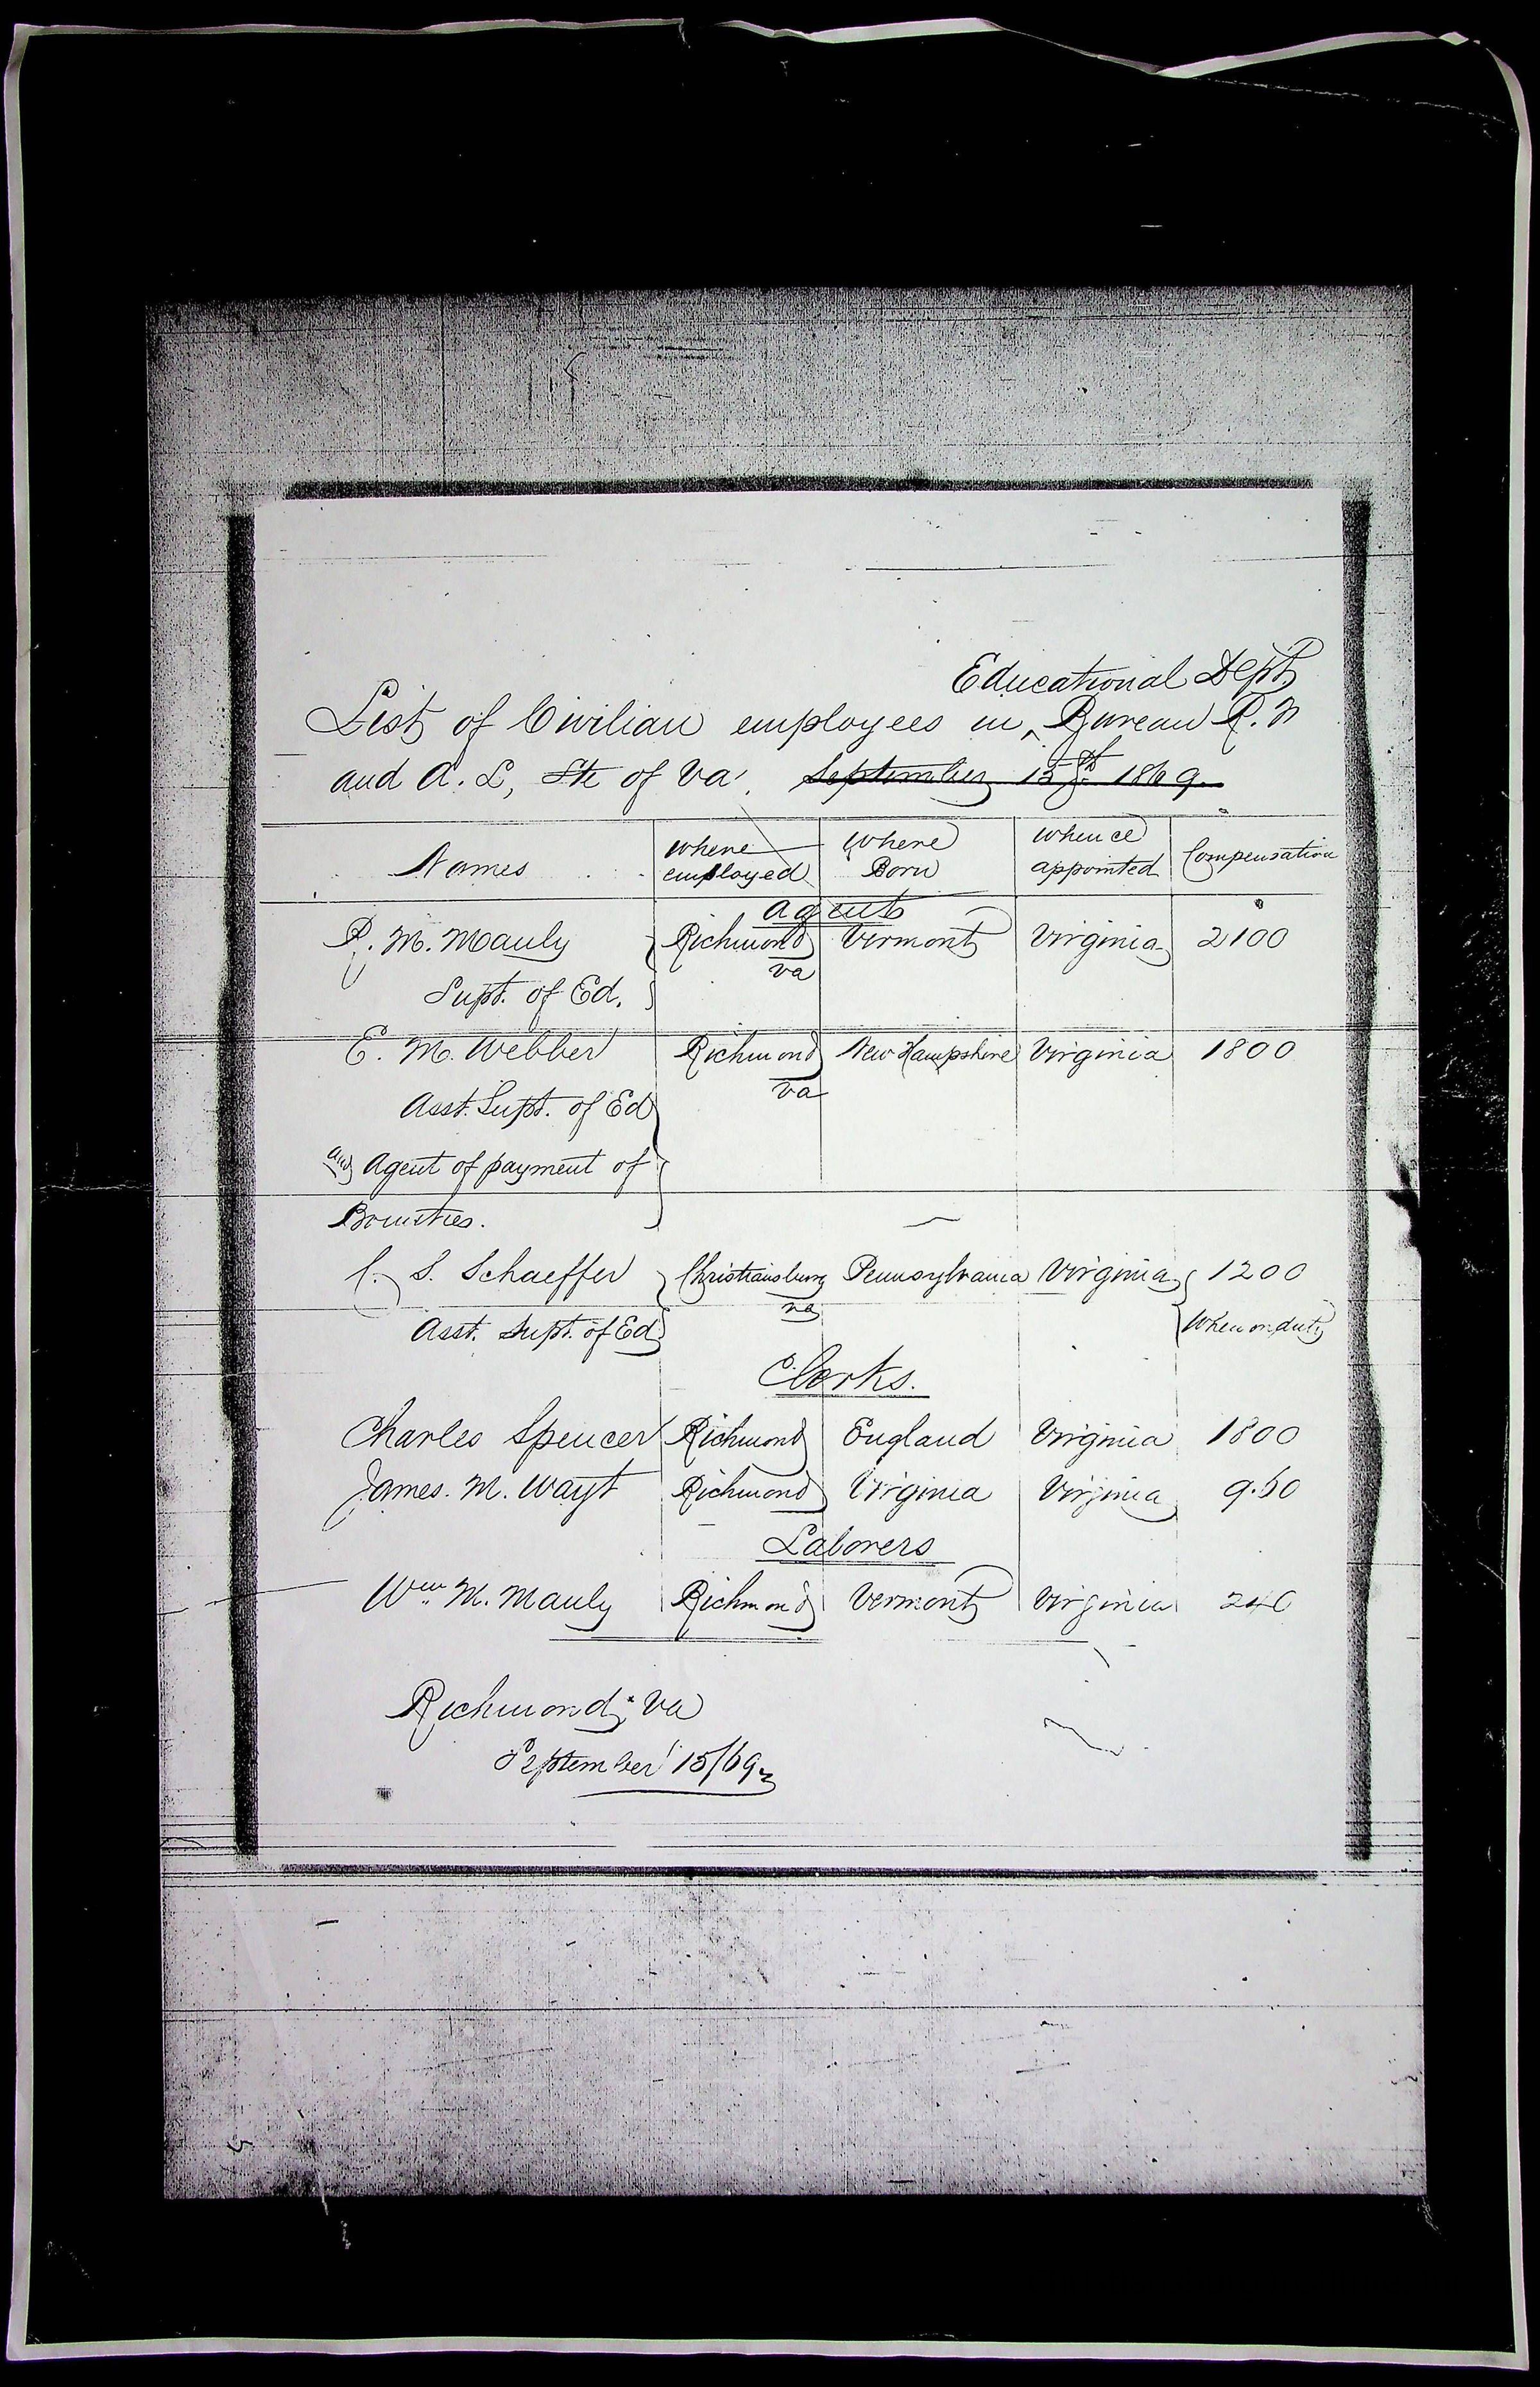 Educational Dept
List of Civilian employees in ^ Bureau R. F
and A. L, Ste of Va. September 15th 1869.
Names where employed Where Born Whence appointed Compensation
Agents
R. M. Manly Richmond Va Vermont Virginia 2100
Supt. of Ed.
E. M. Webber Richmond Va New Hampshire Virginia 1800
Asst. Supt. of Ed
and Agent of payment of
Bounties.
C. S. Schaeffer Christiansburg Va Pennsylvania Virginia 1200
Asst. Supt. of Ed When on duty
Clerks.
Charles Spencer Richmond England Virginia 1800
James. M. Wayt Richmond Virginia Virginia 960
Laborers
Wm. M. Manly Richmond Vermont Virginia 240
Richmond, Va
September 15/69